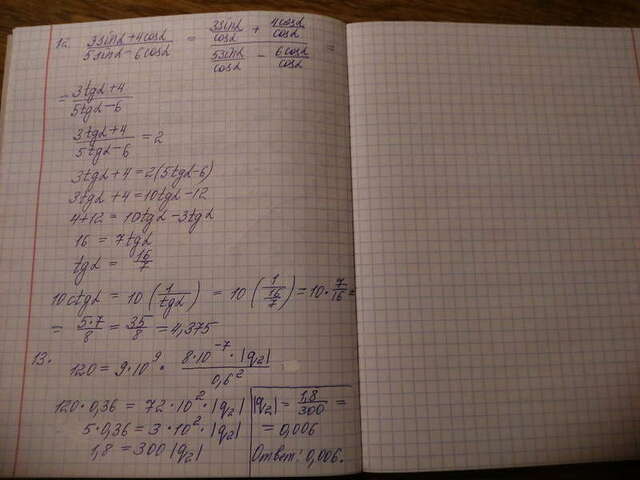 12. (3sinα+4cosα)/(5sinα-6cosα) = (3sinα/cosα + 4cosα/cosα)/(5sinα/cosα - 6cosα/cosα) =
= (3tgα+4)/(5tgα-6)
(3tgα+4)/(5tgα-6) = 2
3tgα+4=2(5tgα-6)
3tgα+4=10tgα-12
4+12 = 10tgα-3tgα
16 = 7tgα
tgα = 16/7
10ctgα = 10(1/tgα) = 10(1/(16/7)) = 10·7/16 =
= 5·7/8 = 35/8 = 4,375
13. 120 = 9·10⁹ · (8·10⁻⁷·|q₂|)/0,6²
120·0,36 = 72·10²·|q₂|
5·0,36 = 3·10²·|q₂|
1,8 = 300|q₂|
|q₂| = 1,8/300 =
= 0,006
Ответ: 0,006.